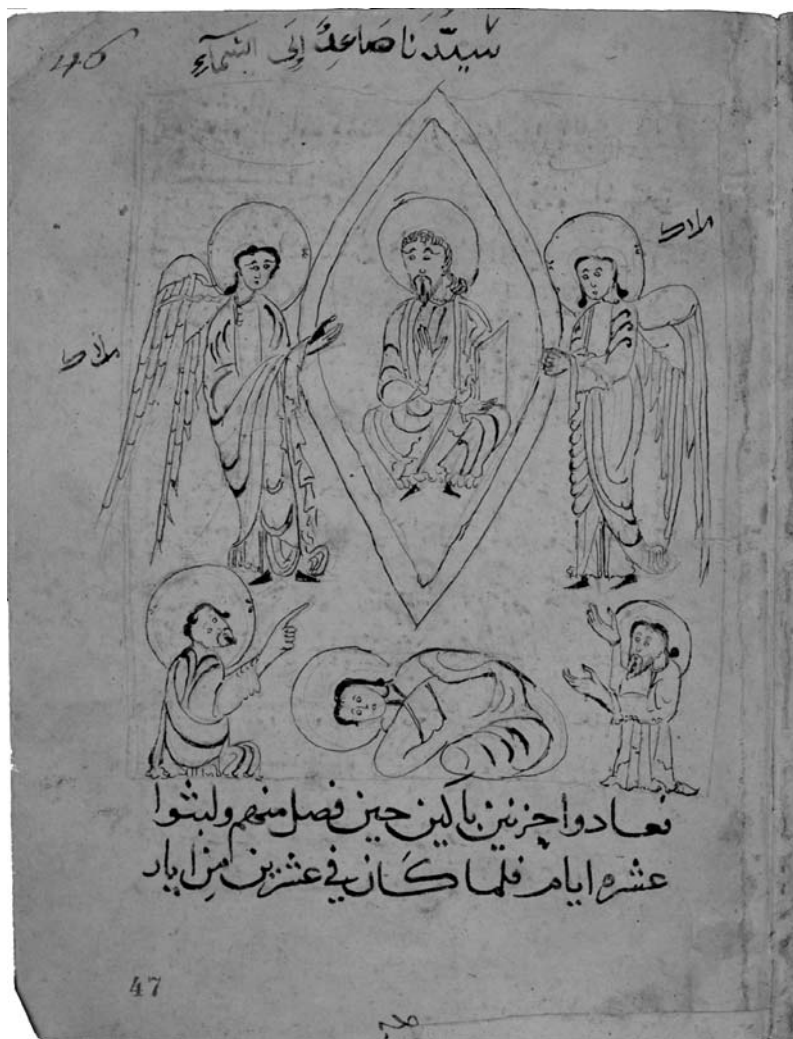 46
سَيِّدَنا صَاعِدًا إِلَى السَّمَآءِ
ملاك
ملاك
فعادوا حزنين باكين حين فصل منهم ولبثوا
عشره ايام فلما كَان في عشرين مِن ايار
47